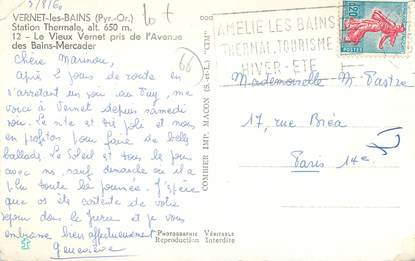 5/8/60
VERNET-les-BAINS (Pyr.-Or.)
Station Thermale, alt. 650 m.
12 - Le Vieux Vernet pris de l'Avenue
des Bains-Mercader
lot
66
AMELIE LES BAINS
THERMAL. TOURISME
HIVER - ETE
0,20
Chère Marinou,
après 2 jours de route en
s'arretant un soir au Puy, me
voici à Vernet depuis samedi
soir. Le site est très joli et nous
en profitons pour faire de belles
ballades. Le Soleil est tous les jours
avec nous, sauf dimanche où il a
plu toute la journée. J'espère
que tu es contente de votre
séjour dans le Jura et je vous
embrasse bien affectueusement
Geneviève
COMBIER IMP. MACON (S.-et-L.) "CIM"
Mademoiselle M Pastre
17, rue Bréa
Paris
Photographie Véritable
Reproduction Interdite